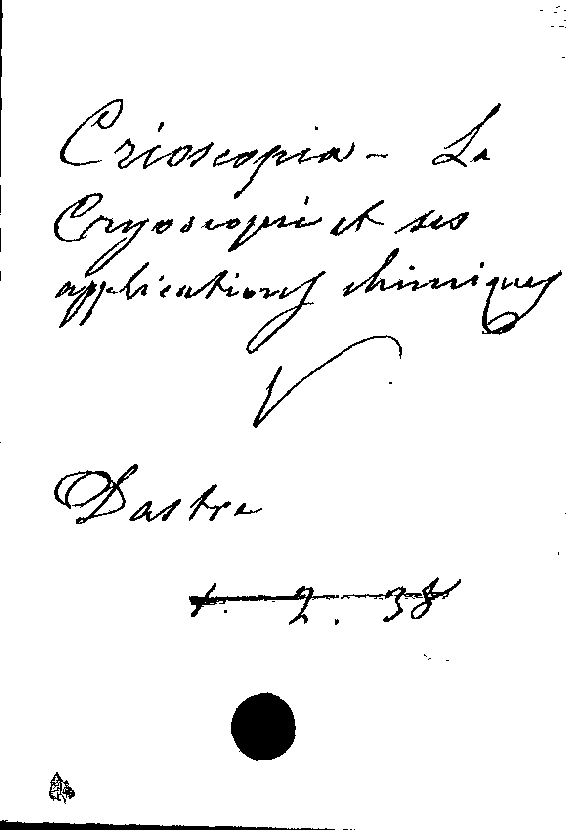 Crioscopia - La
Cryoscopie et ses
applications chimiques
V
Dastre
1. 2. 38